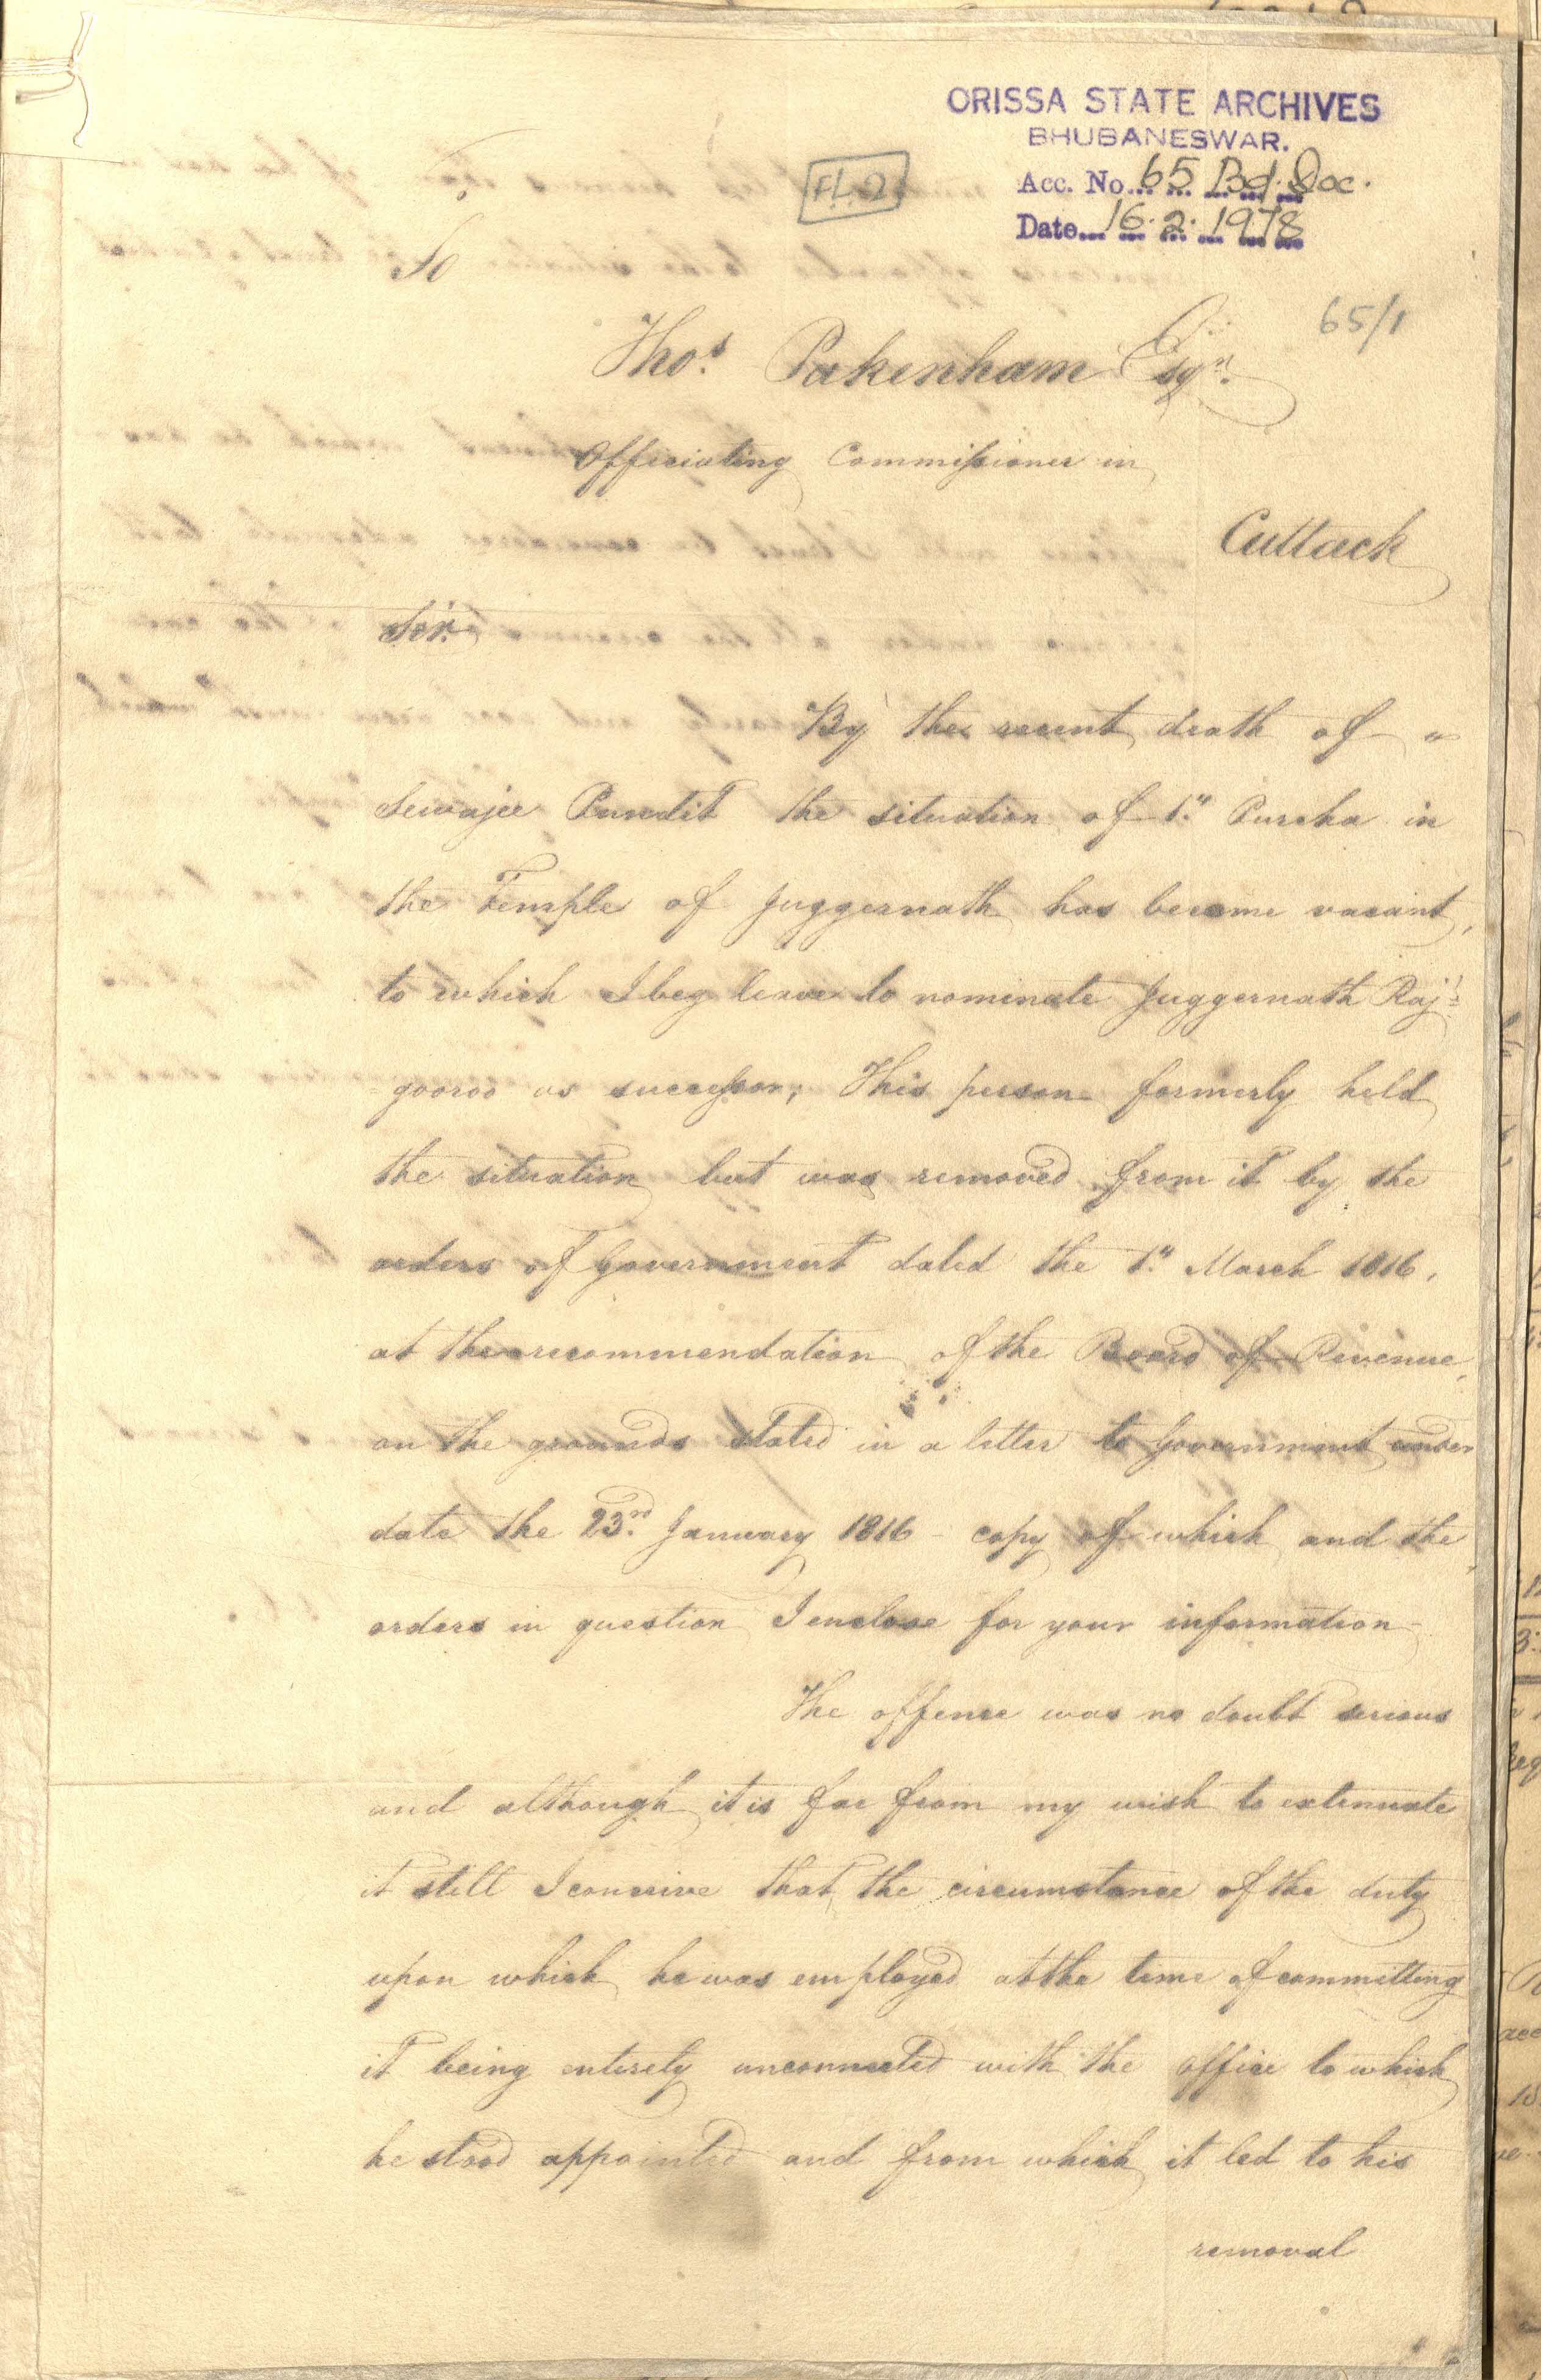 ORISSA STATE ARCHIVES
BHUBANESWAR.
Acc. No. 65 Bd. Doc.
Date 16.2.1978
FL.2
65/1
To
Thos. Pakenham Esqr.
Officiating Commissioner in
Cuttack
Sir.
By the recent death of
Sewajee Pundit the situation of 1st Purcha in
the Temple of Juggernath has become vacant,
to which I beg leave to nominate Juggernath Raj
gooroo as successor; This person formerly held
the situation but was removed from it by the
orders of Government dated the 1st March 1816,
at the recommendation of the Board of Revenue,
on the grounds stated in a letter to Government under
date the 23rd January 1816 - copy of which and the
orders in question I enclose for your information -
The offence was no doubt serious
and although it is far from my wish to extenuate
it still I conceive that the circumstance of the duty
upon which he was employed at the time of committing
it being entirely unconnected with the office to which
he stood appointed and from which it led to his
removal